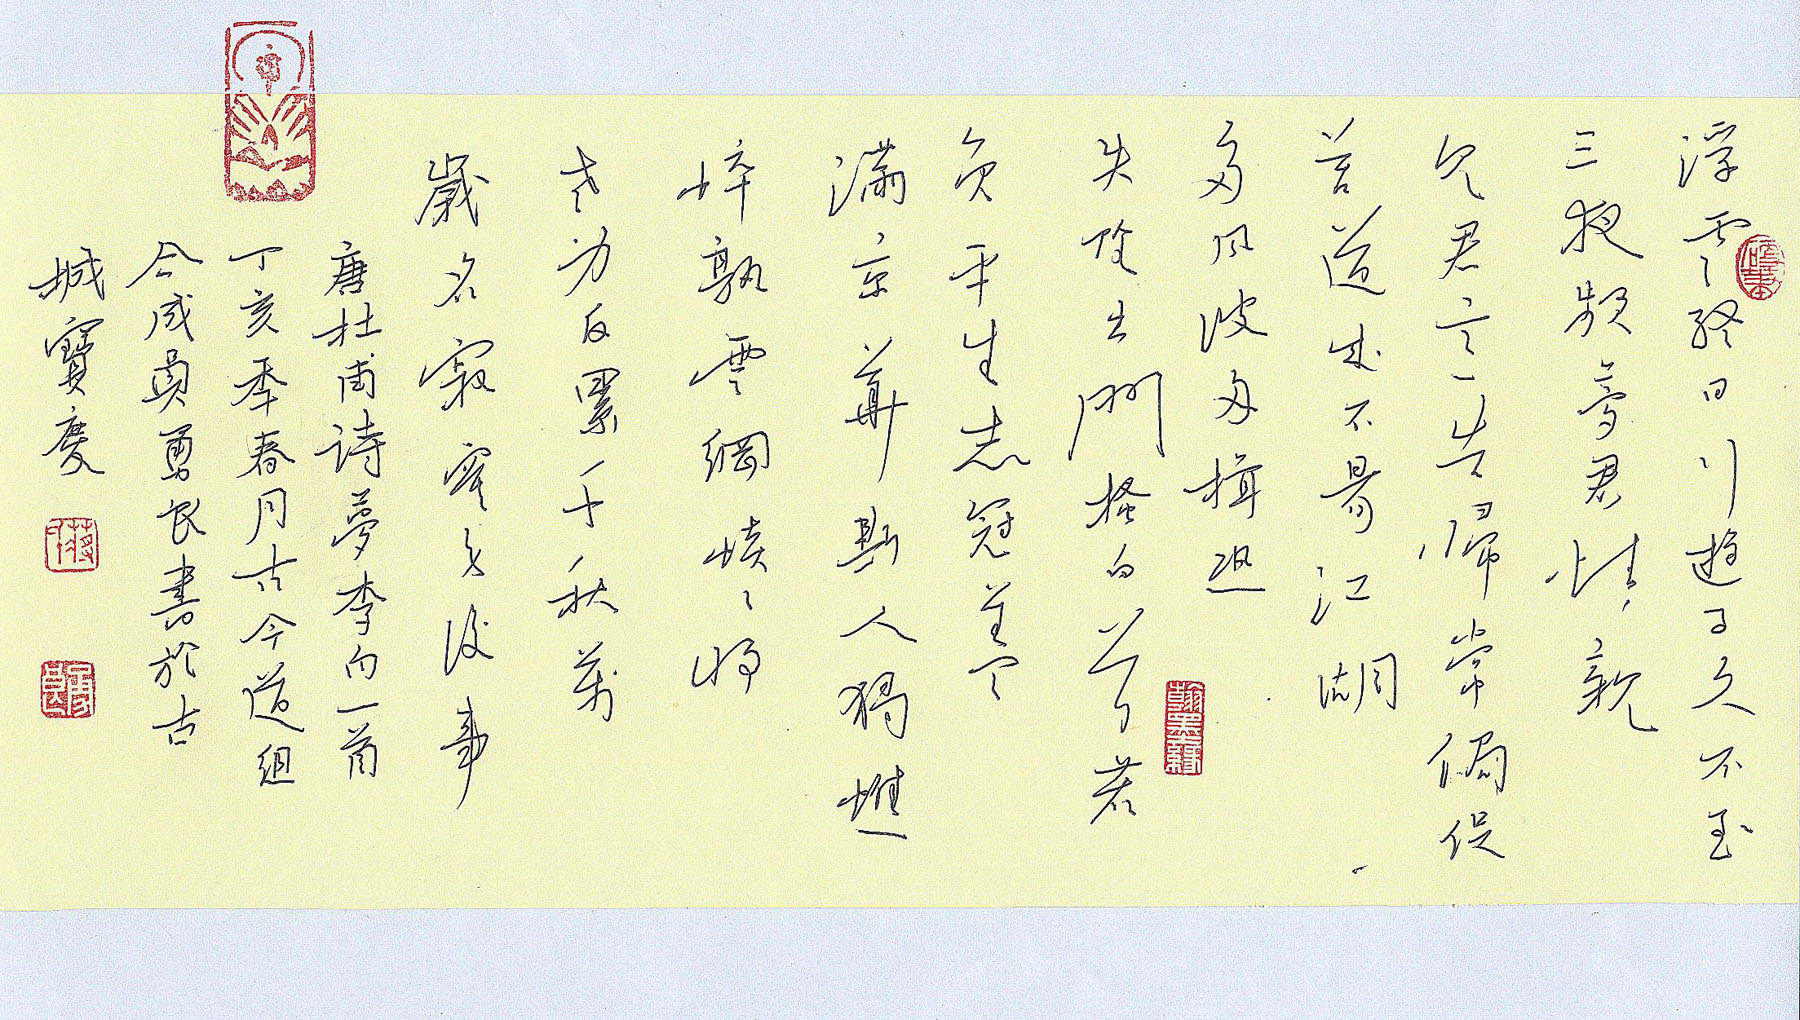 浮雲終日行遊子久不至
三夜頻夢君情親
見君意告歸常侷促
苦道來不易江湖
多風波舟楫恐
失墜出門搔白首若
負平生志冠蓋
滿京華斯人獨憔
悴孰雲網恢々將
老身反累千秋萬
歲名寂寞身後事
唐杜甫詩夢李白一首
丁亥季春月古今道組
合成員勇良書於古
城寶慶
翰墨緣
勇良